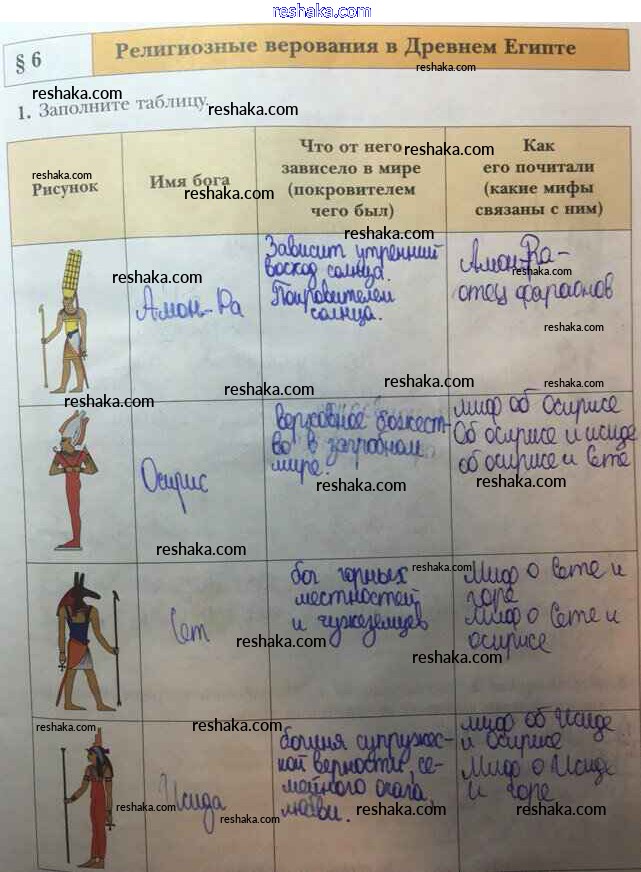 reshaka.com
§ 6
Религиозные верования в Древнем Египте
reshaka.com
reshaka.com
1. Заполните таблицу.
reshaka.com
Рисунок
reshaka.com
Имя бога
reshaka.com
Что от него
зависело в мире
(покровителем
чего был)
reshaka.com
Как
его почитали
(какие мифы
связаны с ним)
reshaka.com
Амон-Ра
Зависит утренний
восход солнца.
Покровителем
солнца.
reshaka.com
Амон-Ра-
отец фараонов
reshaka.com
reshaka.com
reshaka.com
reshaka.com
reshaka.com
reshaka.com
reshaka.com
Осирис
верховное божест-
во в загробном
мире.
reshaka.com
миф об Осирисе
Об осирисе и исиде
об осирисе и Сете
reshaka.com
reshaka.com
Сет
reshaka.com
бог горных
местностей
и чужеземцев
reshaka.com
Миф о Сете и
горе
Миф о Сете и
осирисе
reshaka.com
reshaka.com
reshaka.com
Исида
reshaka.com
богиня супружес-
кой верности, се-
мейного очага,
любви.
reshaka.com
миф об Исиде
и осирисе
Миф о Исиде
и горе
reshaka.com
reshaka.com
reshaka.com
reshaka.com